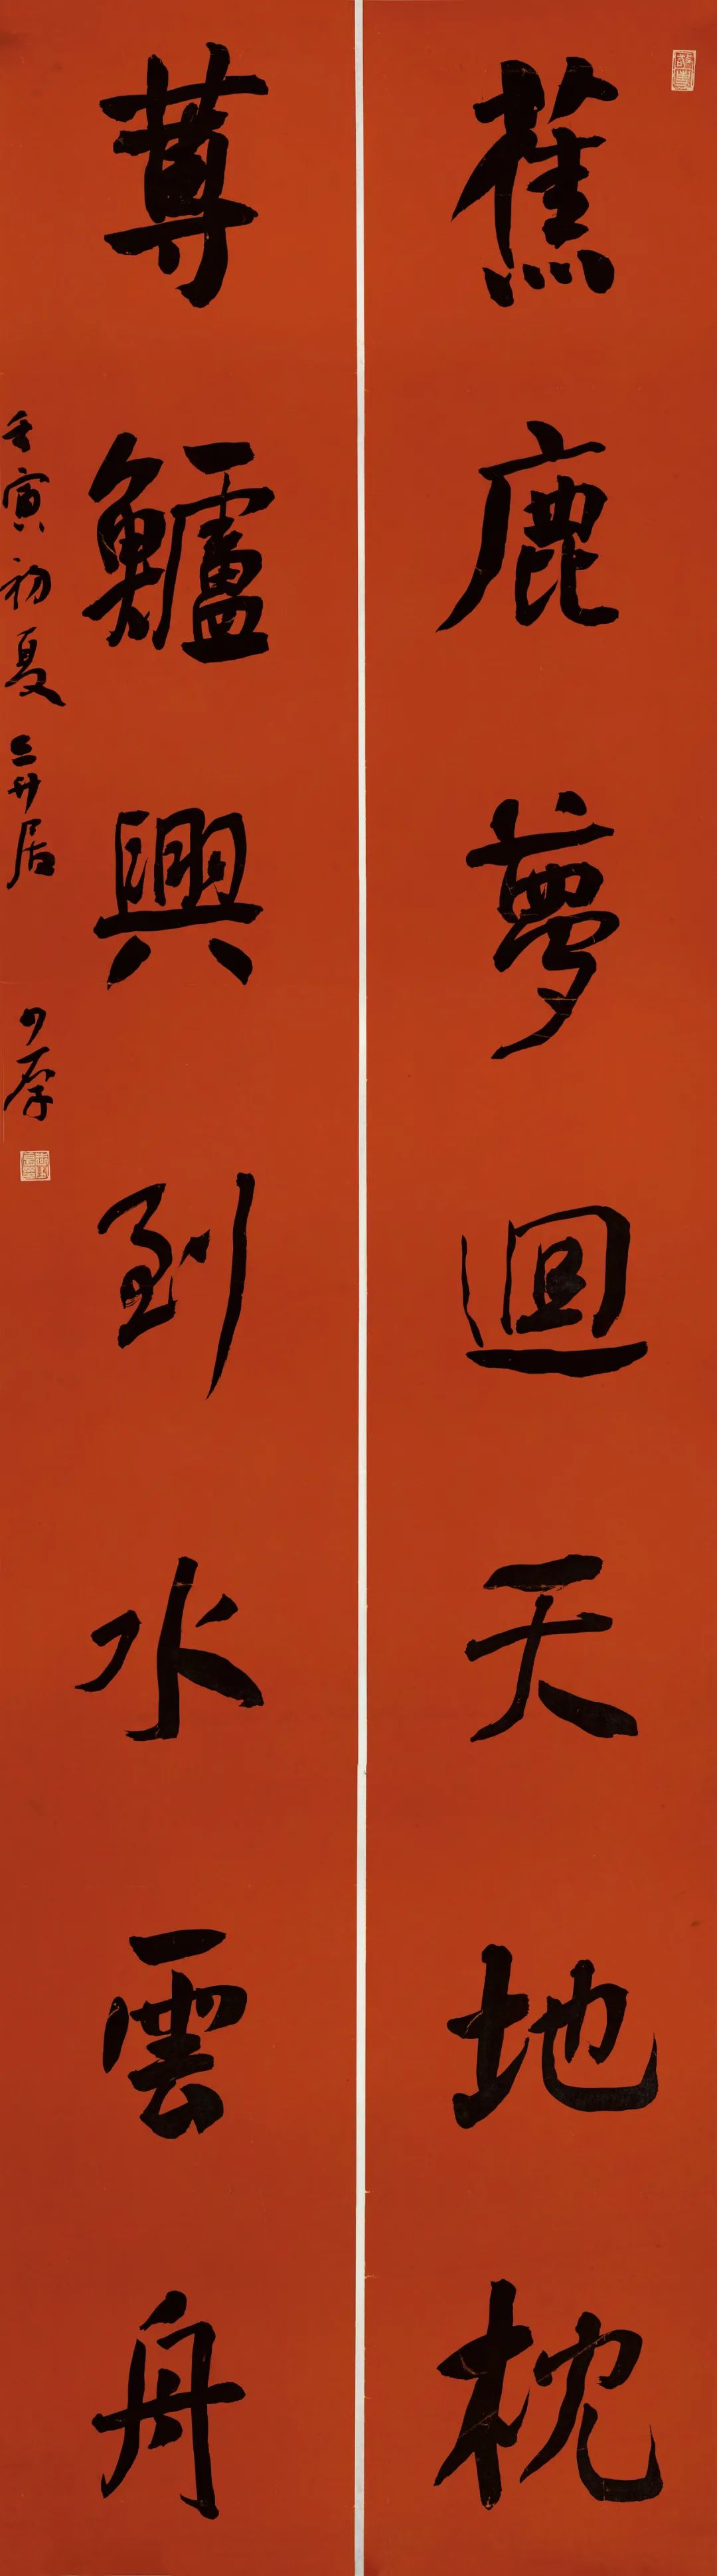 蕉鹿夢迴天地枕
蓴鱸興到水雲舟
壬寅初夏三廿居
少摩